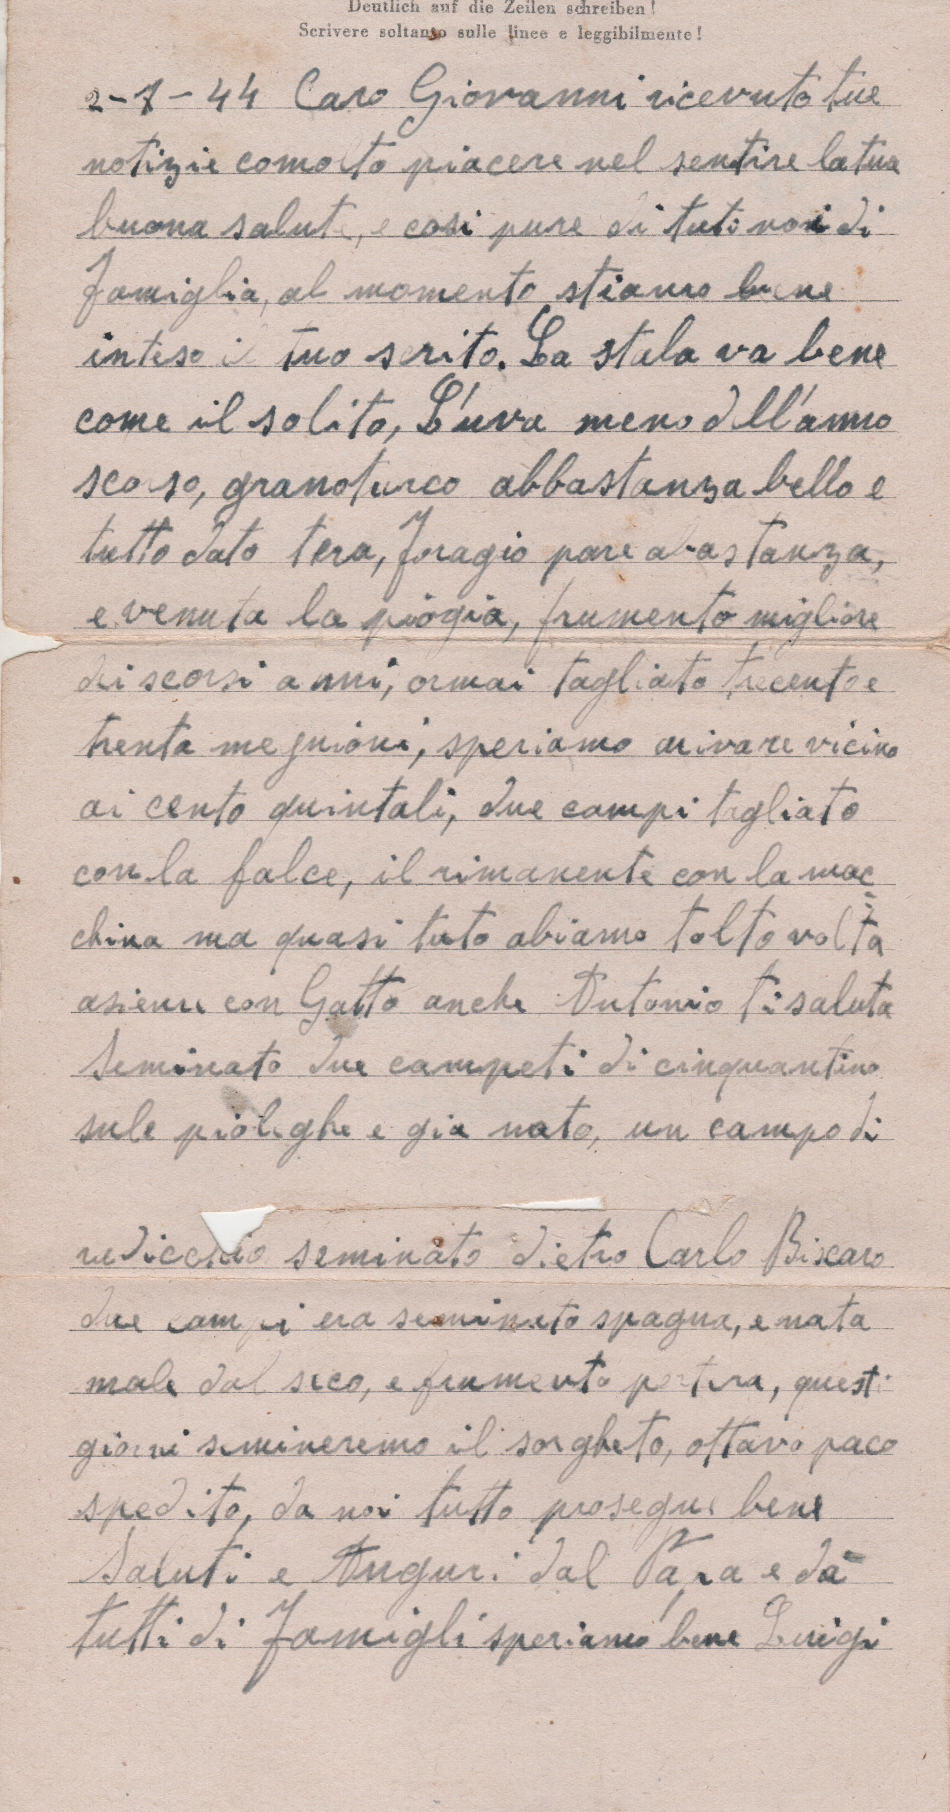 Deutlich auf die Zeilen schreiben!
Scrivere soltanto sulle linee e leggibilmente!
2-7-44 Caro Giovanni ricevuto tue
notizie comolto piacere nel sentire la tua
buona salute, e cosi pure di tuti noi di
Famiglia, al momento stiamo bene
inteso il tuo scrito. La stala va bene
come il solito, L'uva meno dell'anno
scorso, granoturco abbastanza bello e
tutto dato tera, foragio pare abastanza,
e venuta la piogia, frumento migliore
dei scorsi anni, ormai tagliato trecento e
trenta megnioni, speriamo arivare vicino
ai cento quintali, due campi tagliato
con la falce, il rimanente con la mac
china ma quasi tuto abiamo tolto volta
asieme con Gatto anche Antonio ti saluta
Seminato due campeti di cinquantino
sule piolighe e gia nato, un campo di
radicchio seminato dietro Carlo Biscaro
due campi era seminato spagna, e nata
male dal seco, e frumento per tera, questi
giorni semineremo il sorgheto, ottavo paco
spedito, da noi tutto prosegue bene
Saluti e Auguri dal Papa e da
tutti di Famigli speriamo bene Luigi